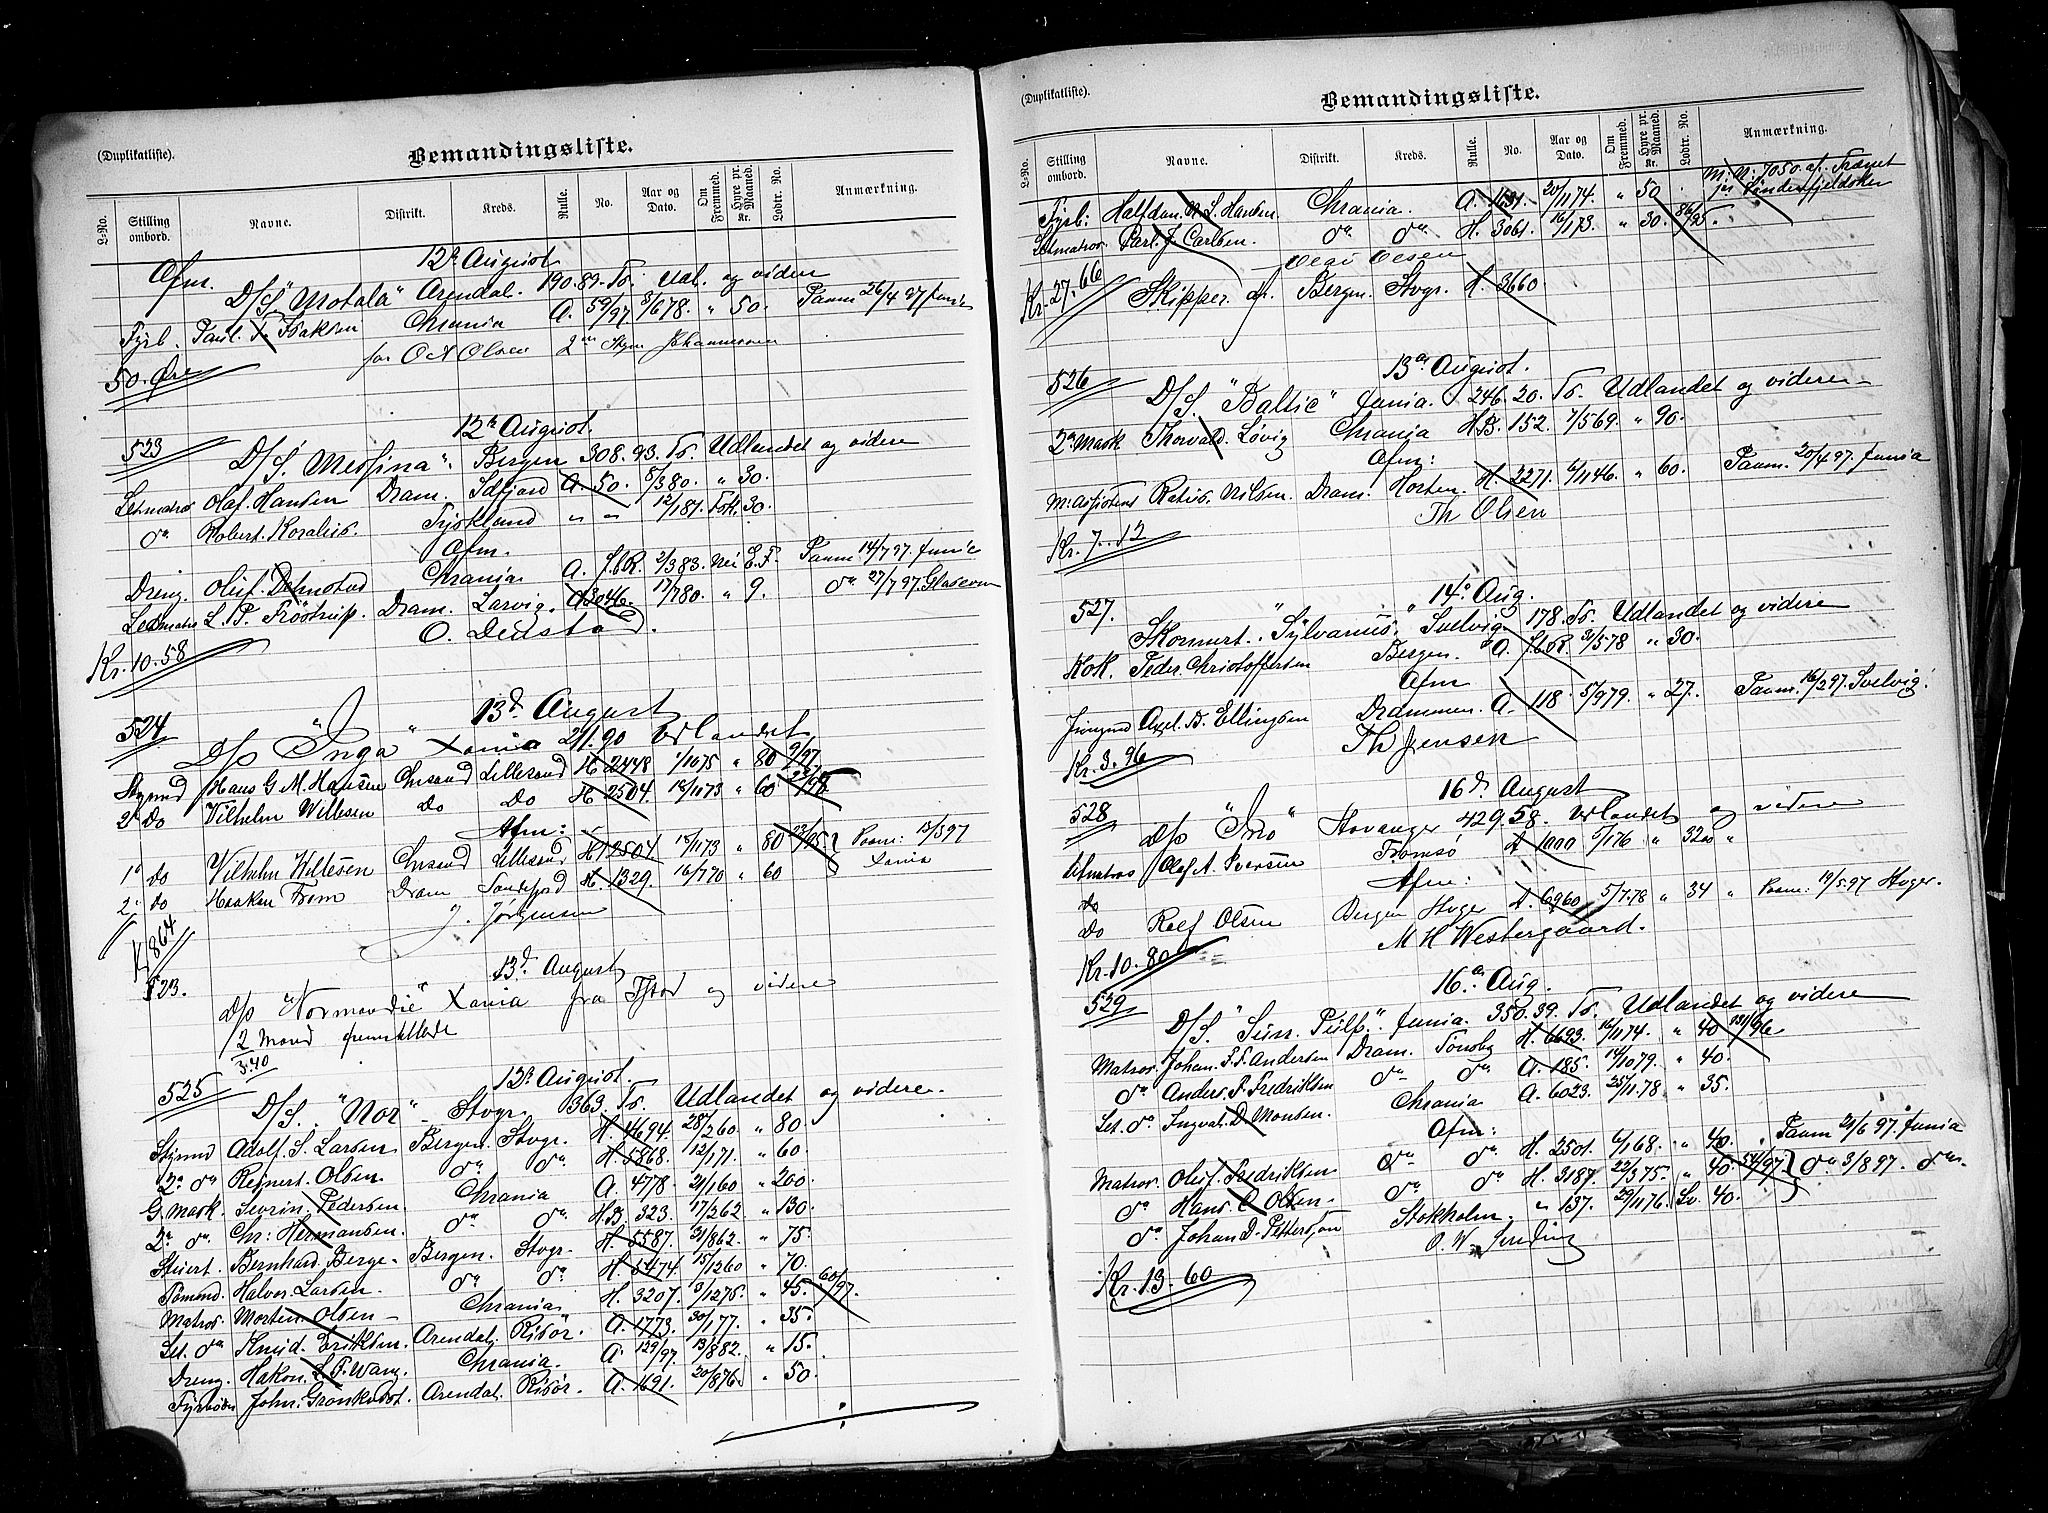 (Duplikatliste).
Bemandingsliste.
L-No. Stilling ombord. Navne. Distrikt. Kreds. Rulle. No. Aar og Dato. Om Fremmed. Hyre pr. Maaned. Kr. Lodtr. No. Anmærkning.
12te August
Afm.
D/S. "Motala" Arendal. 190.89. To. Udl. og videre
Fyrb. Paul. Isaksen Chrania A. 59/97 8/678. " 50. Paam 26/4 97
for O A Olsen 2den Johannessen
50. Øre
12te August.
523
D/S. Messina". Bergen 308.93. To. Udlandet og videre
Letmatros Olaf. Hansen Dram. Idfjord A. 50. 5/380. " 30.
do Robert. Tyskland " " 12/181. Tsk. 30.
Afm.
Dreng. Oluf. Chrania A. f.b.R. 2/383. Nei E.F. Paam. 14/7 97.
Letmatros L. P. Dram. Larvig. A3046. 17/780. " 9. do 27/7 97.
O. Densta
Kr. 10.58
524 13d August
D/S "Inga" Xania 211.90 Udlandet
Stymd Hans G M. Hansen Chrsand Lillesand H 2448 1/1075 " 80 9/97
2 Do Vilhelm Willesen Do Do H 2504. 12/1173 " 60
Afm:
1e do Vilhelm Willesen Chrsand Lillesand H 2504. 12/1173 " 80 Paam: 15/3 97
2 do Haaken From Dram Sandefjord H. 1329. 16/770 " 60 Xania
J. Jørgensen
K 864
13d August
523.
D/S "Normandie" Xania fra og videre
2 Mand
3.40
13de August.
525
D/S. "Nor" Stvgr. 1363. To. Udlandet og videre.
Stymd Adolf. S. Larsen Bergen. Stvgr. H. 4694. 28/260. " 80.
2. do Regnert. Olsen. do do H. 5868. 12/171. " 60.
G. Mask. Sevrin. Pedersen Chrania A. 4778. 21/160. " 200.
2. do. Chr: Hermansen. do do. H.B. 323. 17/262. " 130.
Stuert. Bernhard. Berge. Bergen. Stvgr. H. 5587. 31/862. " 75.
Tømmd. Halvor. Larsen. do do. H. 5474. 15/1260. " 70.
Matros. Morten. Olsen Chrania. H. 3207. 3/1275. " 45. 60/97.
Let. do Knud. Eriksen. Arendal. Risør. A. 1773. 30/177. " 35.
Dreng. Hakon. L. F. Wang. Chrania. A. 129/97. 13/882. " 15.
Fyrbøder John. Arendal. Risør. A. 1691. 20/876. " 50.
(Duplikatliste).
Bemandingsliste.
L-No. Stilling ombord. Navne. Distrikt. Kreds. Rulle. No. Aar og Dato. Om Fremmed. Hyre pr. Maaned. Kr. Lodtr. No. Anmærkning.
M. N. 7050. af. Trænet
Fyrb: Halfdan. A. L. Hansen Chrania. A. 1691. 20/1174. " 50. Søndenfjeldske
Letmatros. Carl. J. Carlsen. do do H. 3061. 16/173. " 30. 86/95.
Olav Olsen
Kr. 27.66 Skipper. af. Bergen. Stvgr. H. 3660.
13de August.
526
D/S. "Baltic" 246.20. To. Udlandet og videre
2. Mask Thorvald. Løvig Chrania H.B. 152. 7/569. " 90.
Afm:
M: Assistent Ratis. Nilsen. Dram. Horten. H. 2271. 6/1146. " 60. Paam. 20/4 97.
Th Olsen
Kr. 7.12
14de Aug.
527.
Skonnert. "Sylvanus". Svelvig. 178. To. Udlandet og videre
Kok. Peder. Christoffersen Bergen. A. f.b.R. 31/578 " 30.
Afm
Axel. B. Ellingsen Drammen. A. 118. 5/979. " 27. Paam. 16/2 97. Svelvig.
Th Jensen
Kr. 3.96
16d August
528
D/S "Ino" Stavanger 429.58. Udlandet og videre
Olaf A. Iversen Tromsø A 1000 5/176 " 32
do Afm:
do Rolf Olsen Bergen Stvgr A. 6960. 5/7.78 " 34 " Paam: 19/5.97 Stvger.
M H Westergaard.
Kr. 10.80
16de Aug.
529
D/S. "Sun. 350.39. To. Udlandet og videre
Matros. Johan. F. F. Andersen Dram. Tønsbg H. 6693. 16/1174. " 40
do Anders. P. Fredriksen do do A. 185. 14/1079. " 40.
Let. do Ingval. D. Monsen. Chrania A. 6023. 25/1178. " 35.
Afm:
Matros. Oluf. Fredriksen do do. H. 2501. 6/168. " 40. Paam 21/6 97.
do Hans. O. Olsen. do do H. 3187. 22/375. " 40. 54/97. do 3/8 97. do
do Johan D. Pettersson Stokholm. " 137. 29/1176. Sv. 40.
O. W.
Kr. 13.60